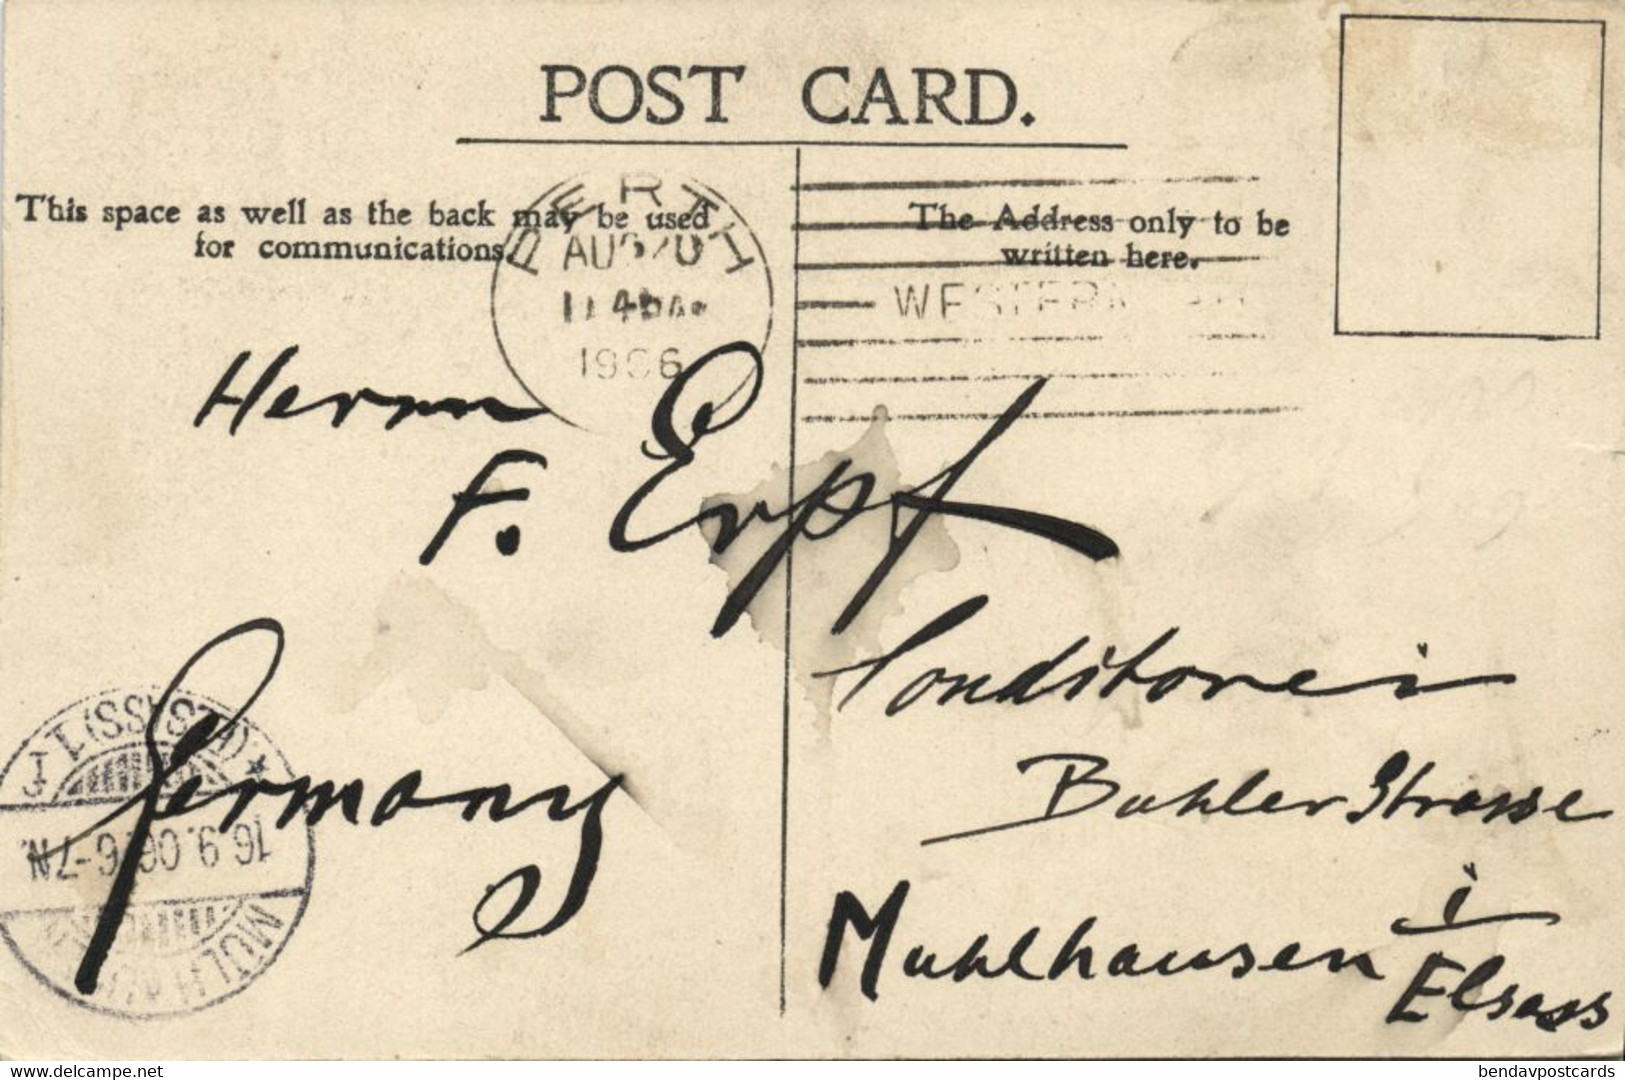 POST CARD.
This space as well as the back may be used
for communications.
The Address only to be
written here.
PERTH
AUG 20
11 45 AM
1906
WESTERN
Herrn
F. Erpf
Conditorei
Buhler Strasse
Muhlhausen i
Elsass
Germany
(ELSASS) 1
16.9.06.6-7N.
MÜLHAUSEN
delcampe.net
bendavpostcards